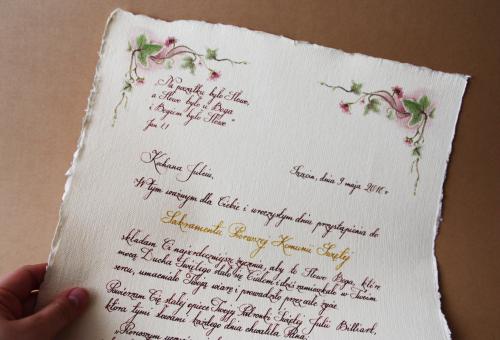 „Na początku było Słowo,
a Słowo było u Boga
i Bogiem było Słowo."
Jan 1,1
Kochana Julciu,
Szczecin, dnia 9 maja 2010 r.
W tym ważnym dla Ciebie i uroczystym dniu przystąpienia do
Sakramentu Pierwszej Komunii Świętej
składam Ci najserdeczniejsze życzenia, aby to Słowo Boga, które
mocą Ducha Świętego stało się Ciałem i dziś zamieszkało w Twoim
sercu, umacniało Twoją wiarę i prowadziło przez całe życie.
Powierzam Cię stałej opiece Twojej Patronki Świętej Julii Billiart,
która tymi słowami każdego dnia chwaliła Pana: